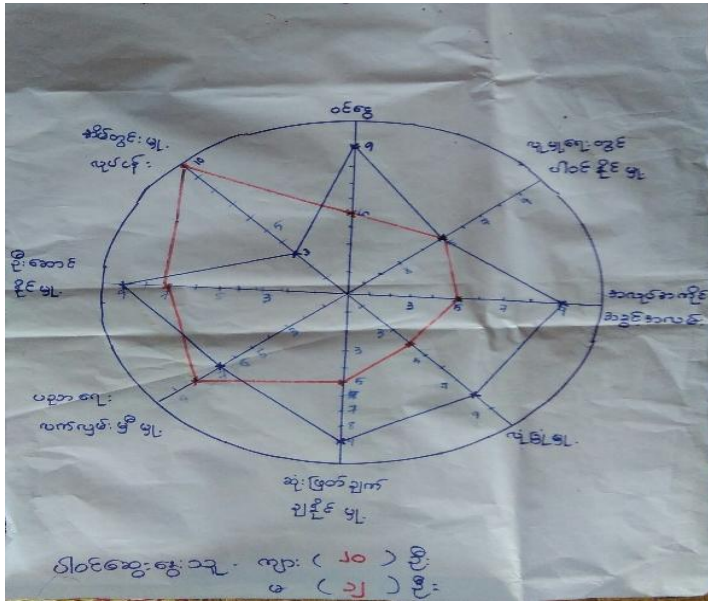 ဝင်ငွေ
လူမှုရေးတွင်
ပါဝင်နိုင်မှု
အလုပ်အကိုင်
အခွင့်အလမ်း
လုံခြုံမှု
ဆုံးဖြတ်ချက်
ချနိုင်မှု
ပညာရေး
လက်လှမ်းမှီမှု
ဦးဆောင်
နိုင်မှု
အိမ်တွင်းမှု
လုပ်ငန်း
ပါဝင်ဆွေးနွေးသူ - ကျား ( ၂၀ ) ဦး
မ ( ၁၂ ) ဦး